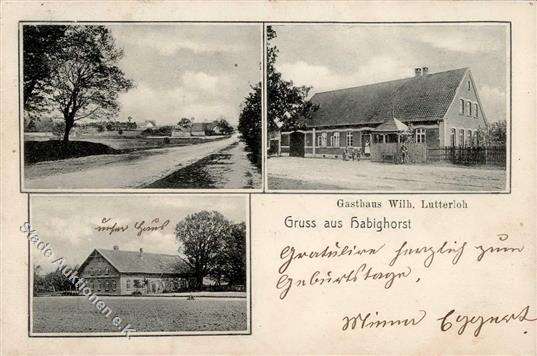 Gasthaus Wilh. Lutterloh
Gruss aus Habighorst
unser Haus
Gratulire herzlich zum
Geburtstage.
Minna Eggert
Stade Auktionen e.K